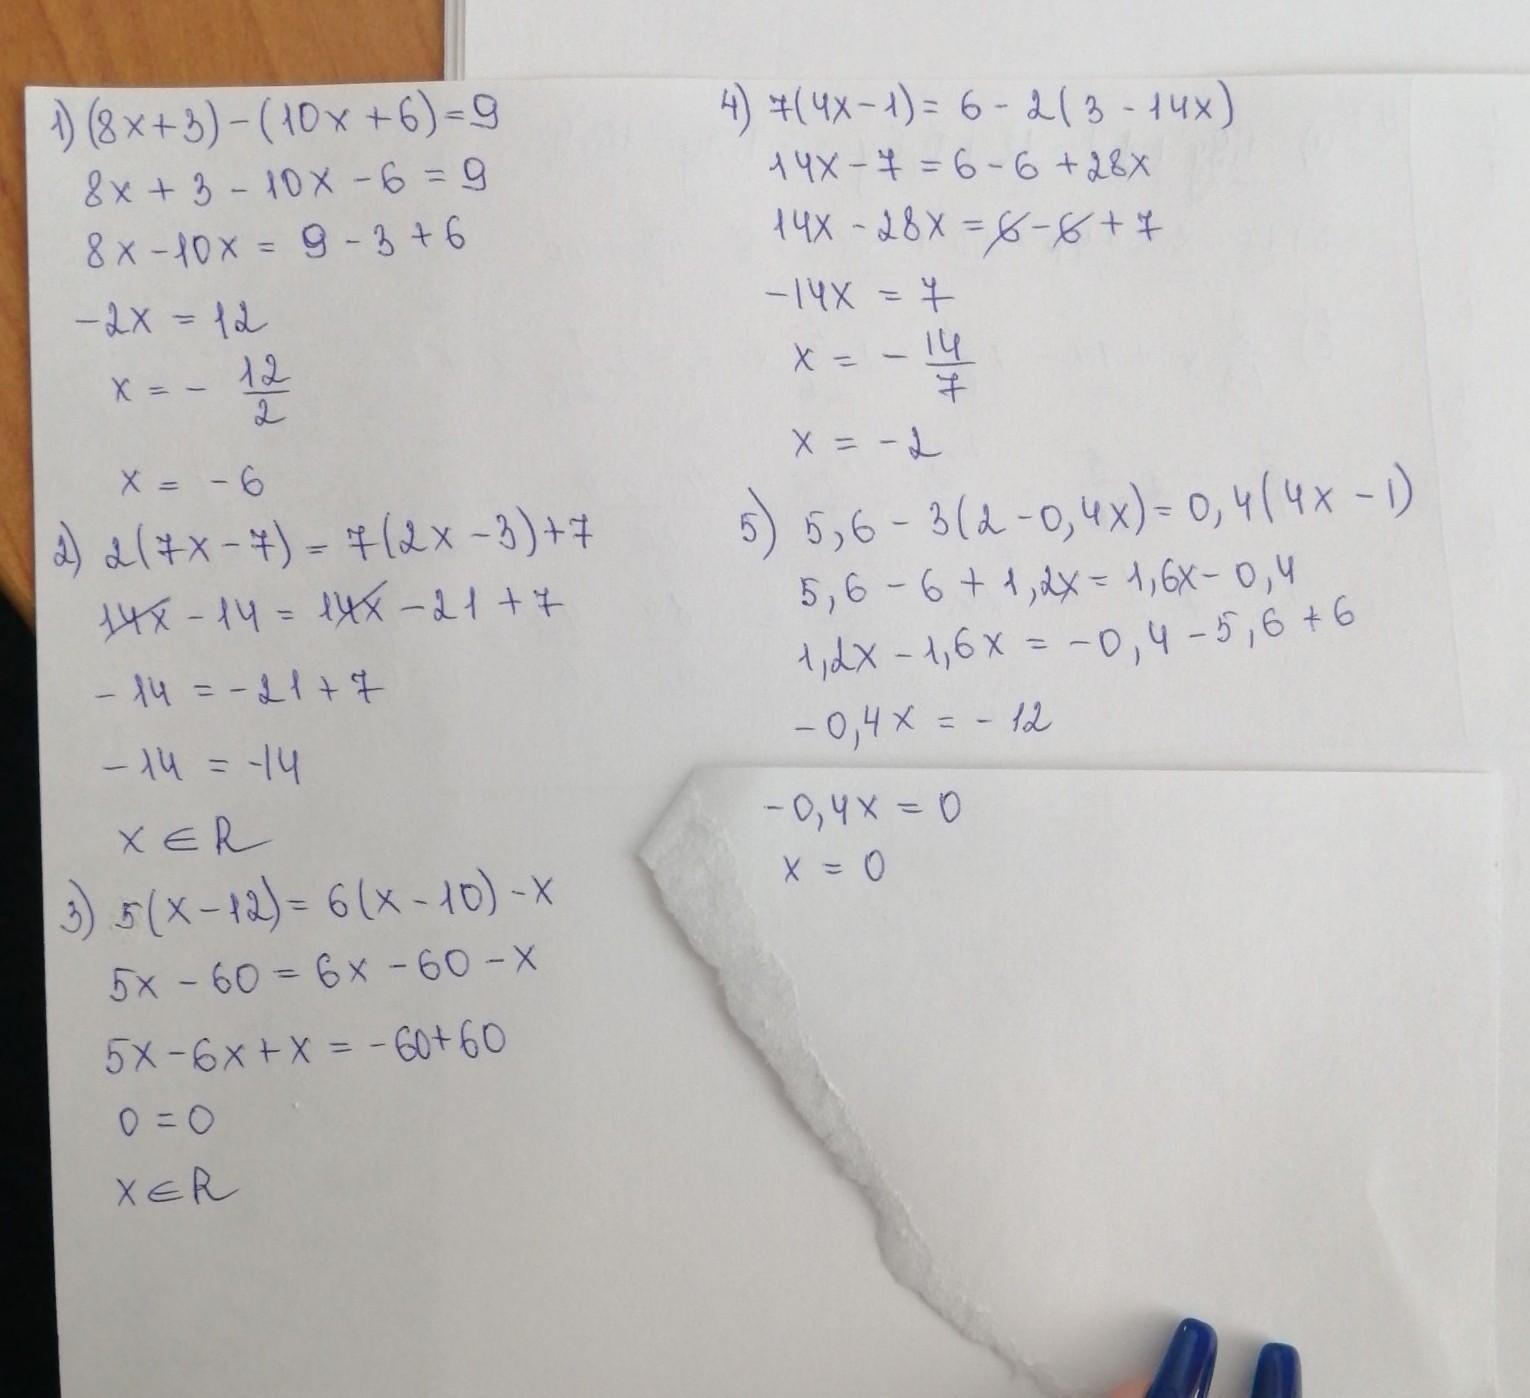 1) (8x+3)-(10x+6)=9
8x+3-10x-6=9
8x-10x=9-3+6
-2x=12
x=-12/2
x=-6
2) 2(7x-7)=7(2x-3)+7
14x-14=14x-21+7
-14=-21+7
-14=-14
x∈R
3) 5(x-12)=6(x-10)-x
5x-60=6x-60-x
5x-6x+x=-60+60
0=0
x∈R
4) 7(4x-1)=6-2(3-14x)
14x-7=6-6+28x
14x-28x=6-6+7
-14x=7
x=-14/7
x=-2
5) 5,6-3(2-0,4x)=0,4(4x-1)
5,6-6+1,2x=1,6x-0,4
1,2x-1,6x=-0,4-5,6+6
-0,4x=-12
-0,4x=0
x=0